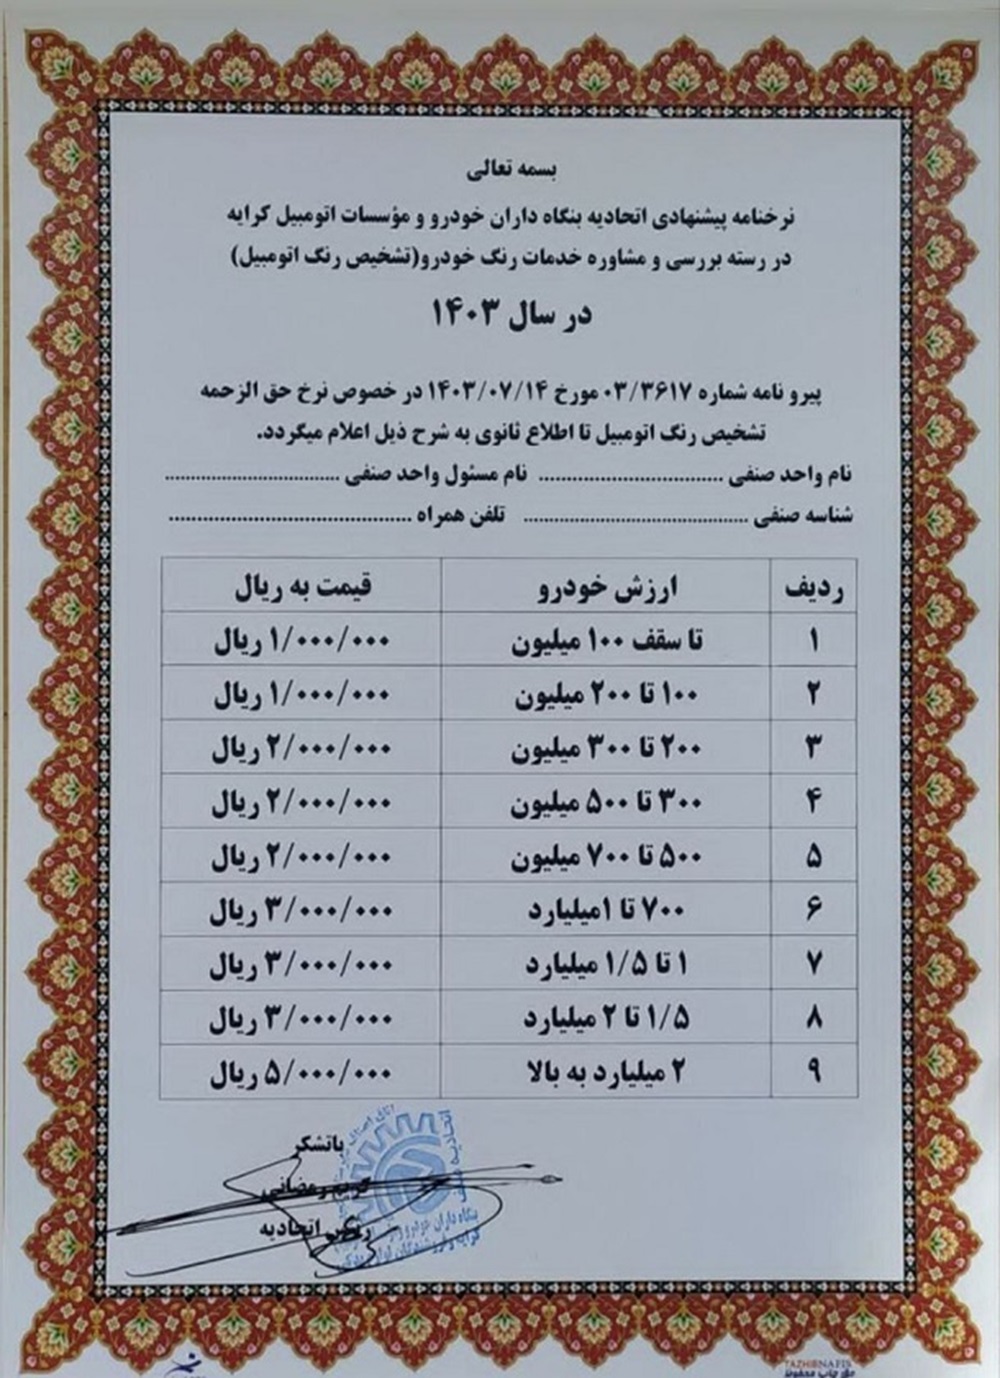 بسمه تعالی
نرخنامه پیشنهادی اتحادیه بنگاه داران خودرو و مؤسسات اتومبیل کرایه
در رسته بررسی و مشاوره خدمات رنگ خودرو(تشخیص رنگ اتومبیل)
در سال ۱۴۰۳
پیرو نامه شماره ۰۳/۳۶۱۷ مورخ ۱۴۰۳/۰۷/۱۴ در خصوص نرخ حق الزحمه
تشخیص رنگ اتومبیل تا اطلاع ثانوی به شرح ذیل اعلام میگردد.
نام واحد صنفی .................................. نام مسئول واحد صنفی ................................
شناسه صنفی ......................................... تلفن همراه ............................................
ردیف ارزش خودرو قیمت به ریال
۱ تا سقف ۱۰۰ میلیون ۱/۰۰۰/۰۰۰ ریال
۲ ۱۰۰ تا ۲۰۰ میلیون ۱/۰۰۰/۰۰۰ ریال
۳ ۲۰۰ تا ۳۰۰ میلیون ۲/۰۰۰/۰۰۰ ریال
۴ ۳۰۰ تا ۵۰۰ میلیون ۲/۰۰۰/۰۰۰ ریال
۵ ۵۰۰ تا ۷۰۰ میلیون ۲/۰۰۰/۰۰۰ ریال
۶ ۷۰۰ تا ۱میلیارد ۳/۰۰۰/۰۰۰ ریال
۷ ۱ تا ۱/۵ میلیارد ۳/۰۰۰/۰۰۰ ریال
۸ ۱/۵ تا ۲ میلیارد ۳/۰۰۰/۰۰۰ ریال
۹ ۲ میلیارد به بالا ۵/۰۰۰/۰۰۰ ریال
باتشکر
کریم رمضانی
رئیس اتحادیه
TAZHIBNAFIS
حق چاپ محفوظ